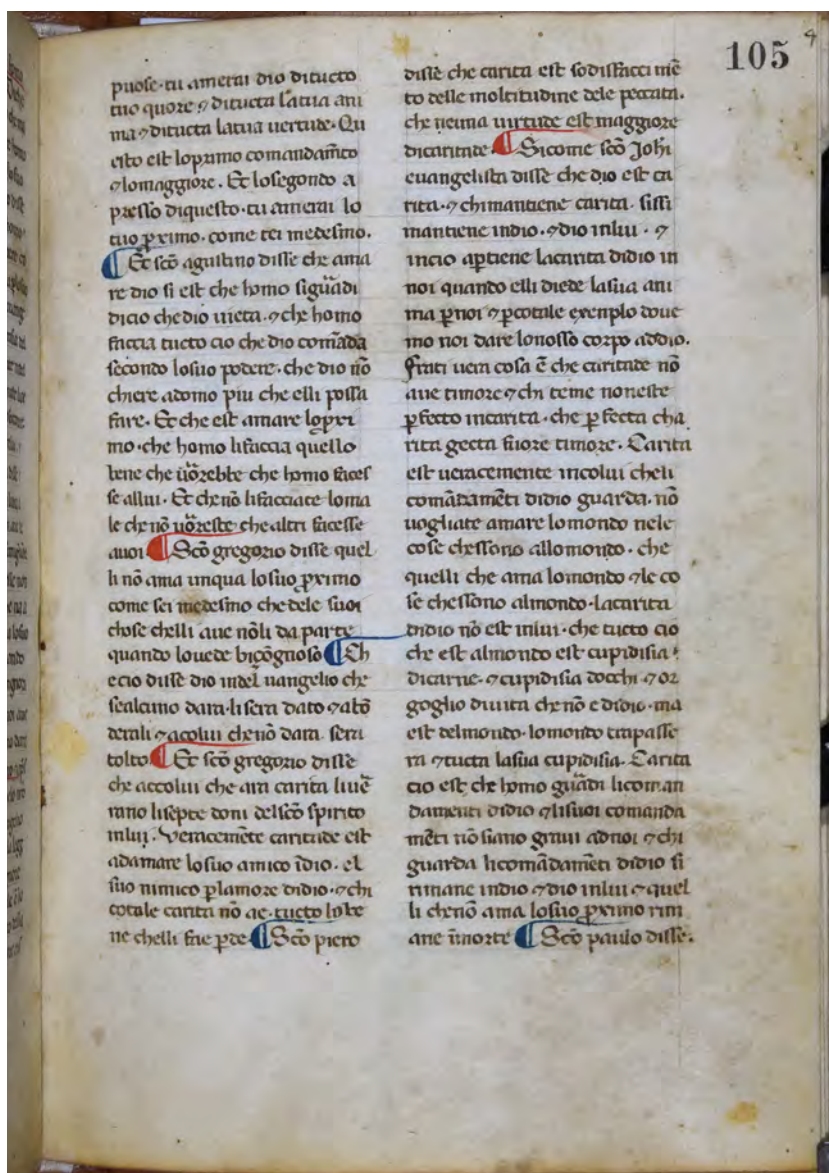 105
4
puose· tu amerai dio ditucto
tuo quore ⁊ ditucta latua ani
ma ⁊ ditucta latua uertude· Qu
esto est loprimo comandam̄to
⁊ lomaggiore. Et losegondo a
presso diquesto· tu amerai lo
tuo ꝓximo· come tei medesmo.
¶ Et sc̄o agustino disse che ama
re dio si est che homo si guardi
dicio che dio uieta· ⁊ che homo
faccia tucto cio che dio comāda
secondo losuo podere· che dio nō
chiere adomo piu che elli possa
fare. Et che est amare lopxi
mo· che homo lifaccia quello
bene che uōrebbe che homo faces
se allui· Et che nō lifacciate loma
le che nō uōreste che altri facesse
auoi ¶ Sc̄o gregorio disse quel
li nō ama unqua losuo ꝓximo
come sei medesmo che dele suoi
chose chelli aue nōli da parte
quando louede bisōgnoso ¶ Ch
e cio disse dio indel uangelio che
sealcuno dara· li sera dato ⁊ abō
derali ⁊ acolui che nō dara sera
tolto ¶ Et sc̄o gregorio disse
che accolui che ara carita liuē
rano lisepte doni delsc̄o spirito
inlui. Veracemēte caritade est
adamare losuo amico ī dio· el
suo nimico ꝑlamore didio· ⁊ chi
cotale carita nō ae· tucto lobe
ne chelli fae ꝑde ¶ Sc̄o piero
disse che carita est sodisfacci mē
to delle moltitudine dele peccata.
che neuna uirtude est maggiore
dicaritade ¶ Sicome sc̄o Joh̄i
euangelista disse che dio est ca
rita· ⁊ chi mantiene carita· sissi
mantiene indio· ⁊ dio inlui· ⁊
incio aptiene lacarita didio in
noi quando elli diede lasua ani
ma ꝑnoi ⁊ ꝑcotale exenplo doue
mo noi dare lonosso corpo addio.
Frati uera cosa ē che caritade nō
aue timore ⁊ chi teme noneste
ꝑfecto incarita· che ꝑfecta cha
rita gecta fuore timore. Carita
est ueracemente incolui cheli
comādamēti didio guarda· nō
uogliate amare lomondo nele
cose chessono allomondo· che
quelli che ama lomondo ⁊ le co
se chessono almondo· lacarita
didio nō est inlui· che tucto cio
che est almondo est cupidisia
dicarne· ⁊ cupidisia docchi ⁊ or
goglio diuita che nō e didio· ma
est delmondo· lomondo trapasse
ra ⁊ tucta lasua cupidisia. Carita
cio est che homo guardi licoman
damenti didio ⁊ lisuoi comanda
mēti nō siano graui adnoi ⁊ chi
guarda licomādamēti didio si
rimane indio ⁊ dio inlui ⁊ quel
li che nō ama losuo ꝓximo rim
ane īmorte ¶ Sc̄o paulo disse.